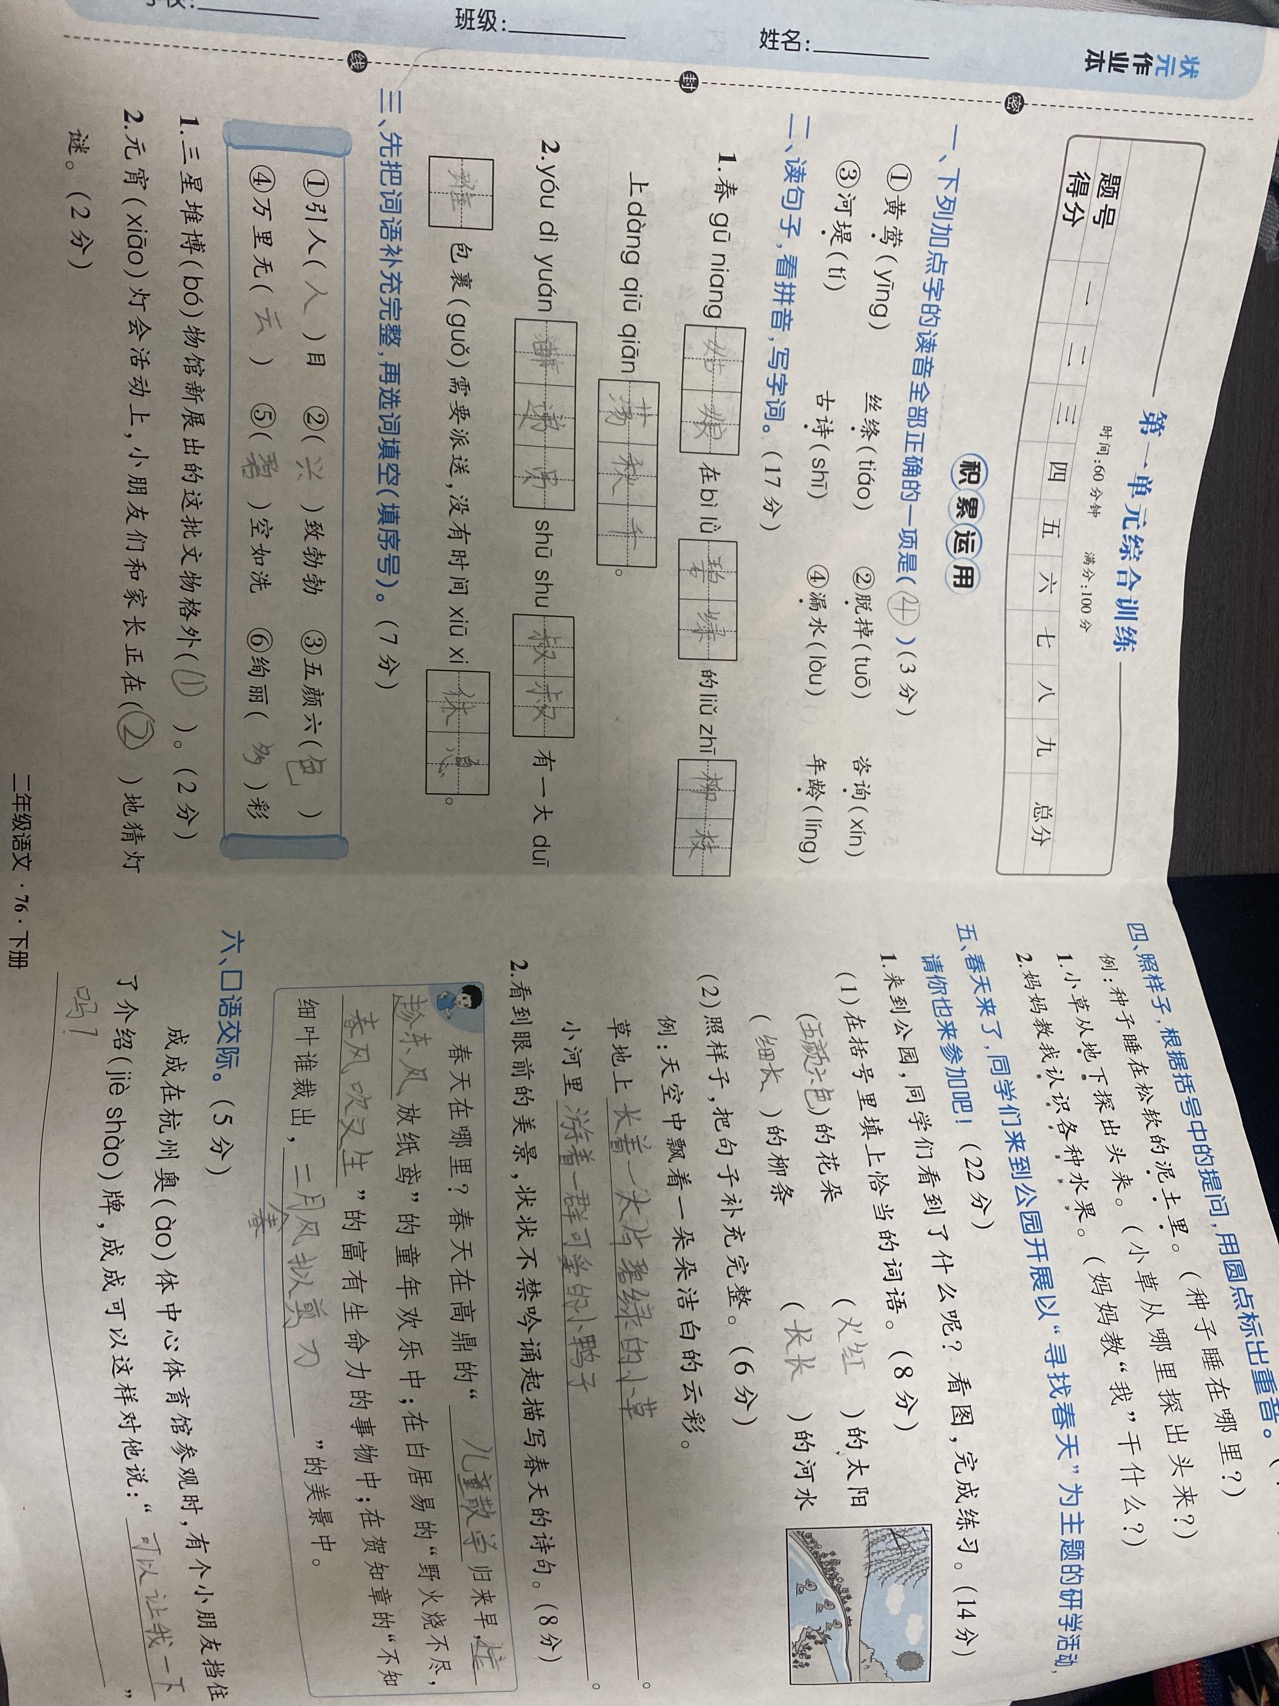 状元作业本
姓名:
班级:
密
封
线
第一单元综合训练
时间:60分钟 满分:100分
题号 一 二 三 四 五 六 七 八 九 总分
得分
积累运用
一、下列加点字的读音全部正确的一项是(④)(3分)
①黄莺(yīng) 丝绦(tiáo) ②脱掉(tuō) 咨询(xín)
③河堤(tí) 古诗(shī) ④漏水(lòu) 年龄(líng)
二、读句子,看拼音,写字词。(17分)
1.春 gū niang 姑娘 在 bì lǜ 碧绿 的 liǔ zhī 柳枝
上 dàng qiū qiān 荡秋千。
2.yóu dì yuán shū shu 叔叔 有一大 duī
堆 包裹(guǒ)需要派送,没有时间 xiū xi 休息。
三、先把词语补充完整,再选词填空(填序号)。(7分)
①引人(入)目 ②(兴)致勃勃 ③五颜六(色)
④万里无(云) ⑤(碧)空如洗 ⑥绚丽(多)彩
1.三星堆博(bó)物馆新展出的这批文物格外(①)。(2分)
2.元宵(xiāo)灯会活动上,小朋友们和家长正在(②)地猜灯
谜。(2分)
四、照样子,根据括号中的提问,用圆点标出重音。
例:种子睡在松软的泥土里。(种子睡在哪里?)
1.小草从地下探出头来。(小草从哪里探出头来?)
2.妈妈教我认识各种水果。(妈妈教“我”干什么?)
五、春天来了,同学们来到公园开展以“寻找春天”为主题的研学活动,
请你也来参加吧!(22分)
1.来到公园,同学们看到了什么呢?看图,完成练习。(14分)
(1)在括号里填上恰当的词语。(8分)
(五颜六色)的花朵 (火红)的太阳
(细长)的柳条 (长长)的河水
(2)照样子,把句子补充完整。(6分)
例:天空中飘着一朵朵洁白的云彩。
草地上长着一大片碧绿的小草。
小河里游着一群可爱的小鸭子。
2.看到眼前的美景,状状不禁吟诵起描写春天的诗句。(8分)
春天在哪里?春天在高鼎的“儿童散学归来早,忙
趁东风放纸鸢”的童年欢乐中;在白居易的“野火烧不尽,
春风吹又生”的富有生命力的事物中;在贺知章的“不知
细叶谁裁出,二月春风似剪刀”的美景中。
六、口语交际。(5分)
成成在杭州奥(ào)体中心体育馆参观时,有个小朋友挡住
了介绍(jiè shào)牌,成成可以这样对他说:“可以让我一下
吗?”
二年级语文·76·下册